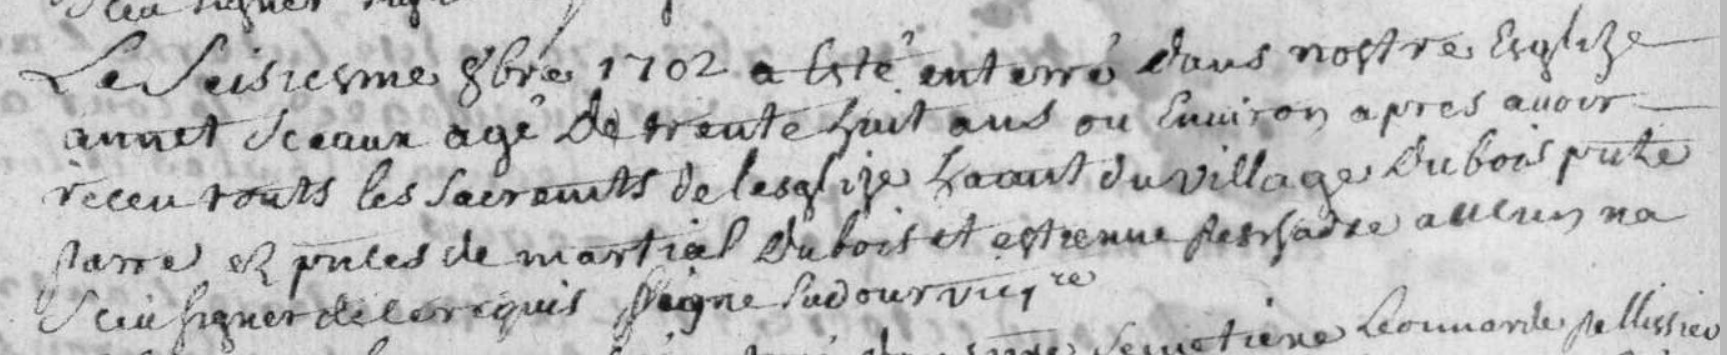 sceu signer
Le Seisiesme 8bre 1702 a esté enterré dans nostre Esglize
annet Sceaux agé de trente huit ans ou Environ apres auoir
receu touts les Sacremts de lesglize du village Dubois pnte
parre ez pnces de martial Dubois et estienne aucun na
Sceu signer de ce requis Signe Sudour vicre
Leonnarde pellissier